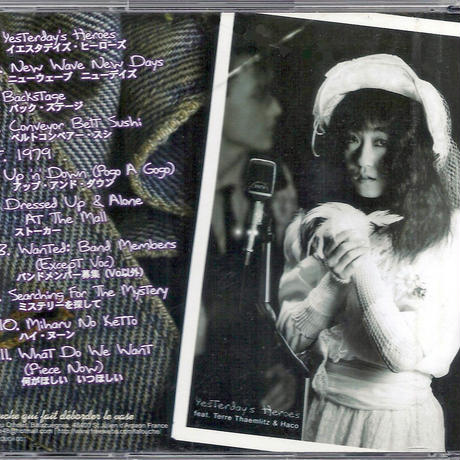 Yesterday's Heroes
イエスタデイズ・ヒーローズ
New Wave New Days
ニューウェーブ ニューデイズ
Backstage
バック・ステージ
Conveyor Belt Sushi
ベルトコンベアー・スシ
1979
Up 'n Down (Pogo A Gogo)
アップ・アンド・ダウン
Dressed Up & Alone
AT The Mall
ストーカー
Wanted: Band Members
(Except Voc)
バンドメンバー募集 (Vo以外)
Searching For The Mystery
ミステリーを探して
10. Miharu No Ketto
ハイ・ヌーン
11. What Do We Want
(Piece Now)
何がほしい いつほしい
Yesterday's Heroes
feat. Terre Thaemlitz & Haco
qui fait déborder le vase
48400 St Julien d'Arpaon France